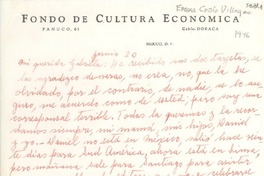 Emma Cosío Villegas
1946
FONDO DE CULTURA ECONOMICA
PANUCO, 63
Cable: DORACA
MEXICO, D. F.
junio 20
Mi querida Gabriela: He recibido sus dos tarjetas, se
las agradezco de veras, no crea, no, que la he
olvidado, por el contrario, de nadie, se lo ase-
guro, me acuerdo como de usted, pero soy una
corresponsal terrible. Todos la queremos y la recor-
damos siempre, mi mamá, mis hijos, Daniel
y yo. Daniel no está en México, salió hace sie-
te días para Sud América, ahora está en el barco,
pero mañana sale para Santiago para asistir